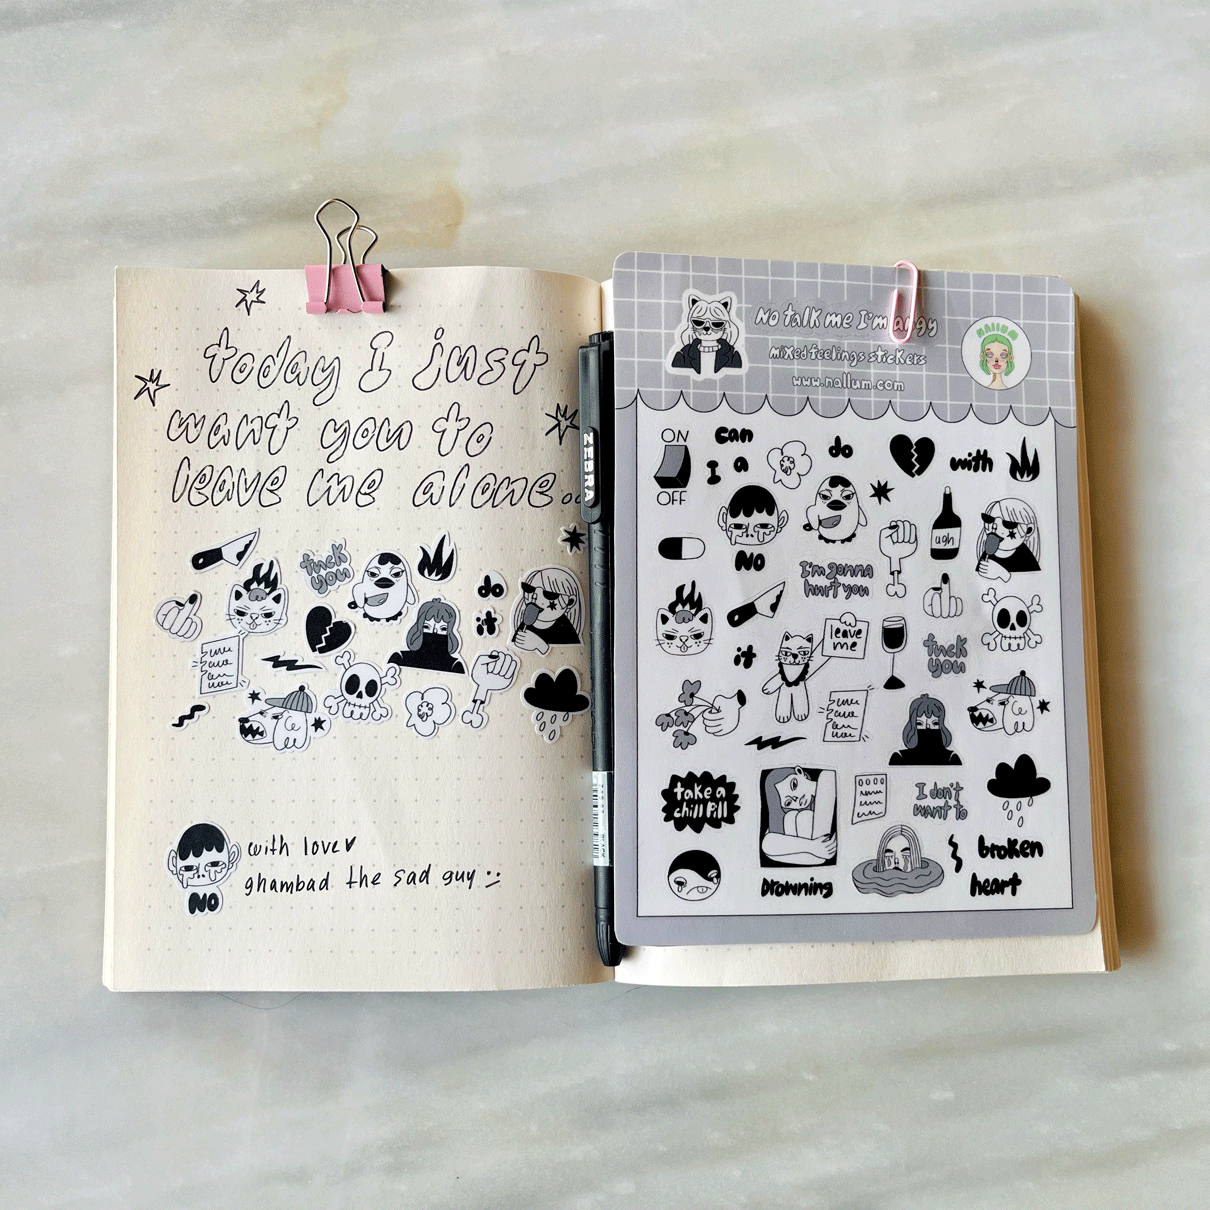 today I just
want you to
leave me alone..
fuck
you
do
it
NO
with love♥
ghambad the sad guy
ZEBRA
No talk me I'm angy
mixed feelings stickers
www.nallum.com
NALLUM
ON
OFF
can
I a
do
with
NO
ugh
I'm gonna
hurt you
it
leave
me
fuck
you
take a
chill pill
I don't
want to
Drowning
broken
heart